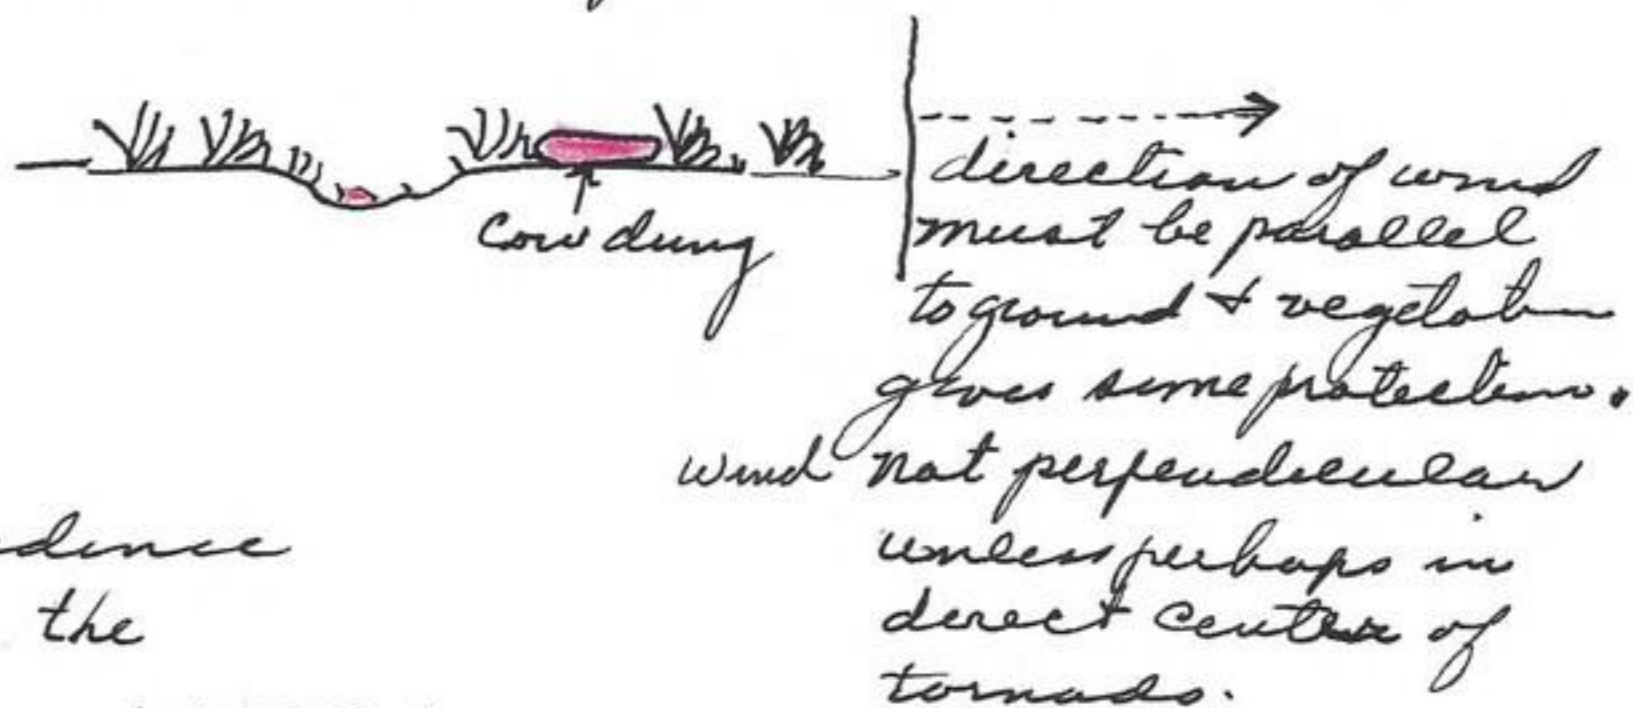 Cow dung
direction of wind
must be parallel
to ground + vegetation
gives some protection.
wind not perpendicular
unless perhaps in
direct center of
tornado.
the